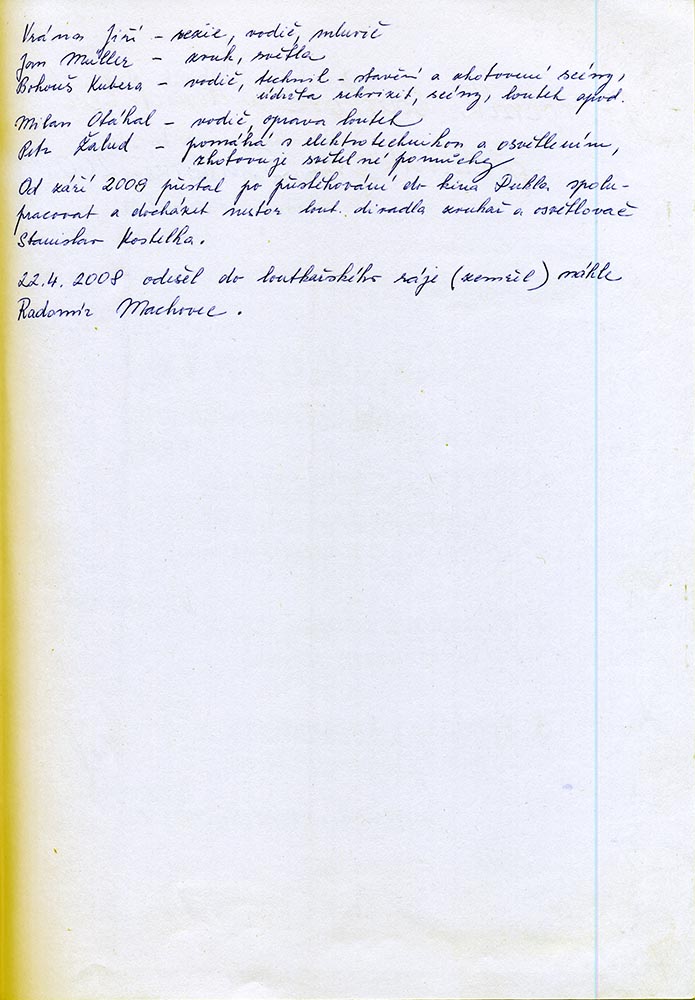 Vránas Jiří – režie, vodič, mluvič
Jan Müller – zvuk, světla
Bohouš Kubera – vodič, technik – stavění a zhotovení scény,
údržba rekvizit, scény, loutek apod.
Milan Otáhal – vodič, oprava loutek
Petr Žalud – pomáhá s elektrotechnikou a osvětlením,
zhotovuje světelné pomůcky
Od září 2008 přestal po přestěhování do kina Dukla spolu-
pracovat a docházet nestor lout. divadla zvukař a osvětlovač
Stanislav Kostelka.
22.4. 2008 odešel do loutkařského ráje (zemřel) náhle
Radomír Machovec.